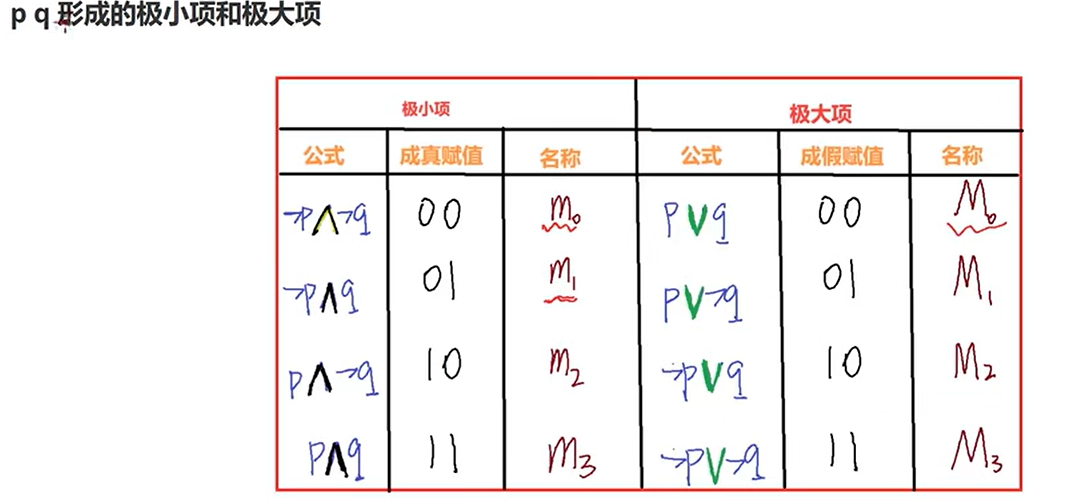 p q 形成的极小项和极大项
极小项 极大项
公式 成真赋值 名称 公式 成假赋值 名称
¬p∧¬q 00 m₀ p∨q 00 M₀
¬p∧q 01 m₁ p∨¬q 01 M₁
p∧¬q 10 m₂ ¬p∨q 10 M₂
p∧q 11 m₃ ¬p∨¬q 11 M₃